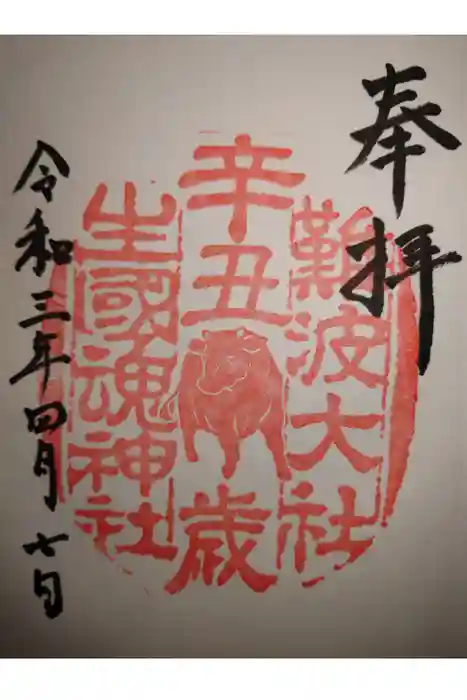 奉拝
難波大社
辛丑歳
生國魂神社
令和三年四月七日